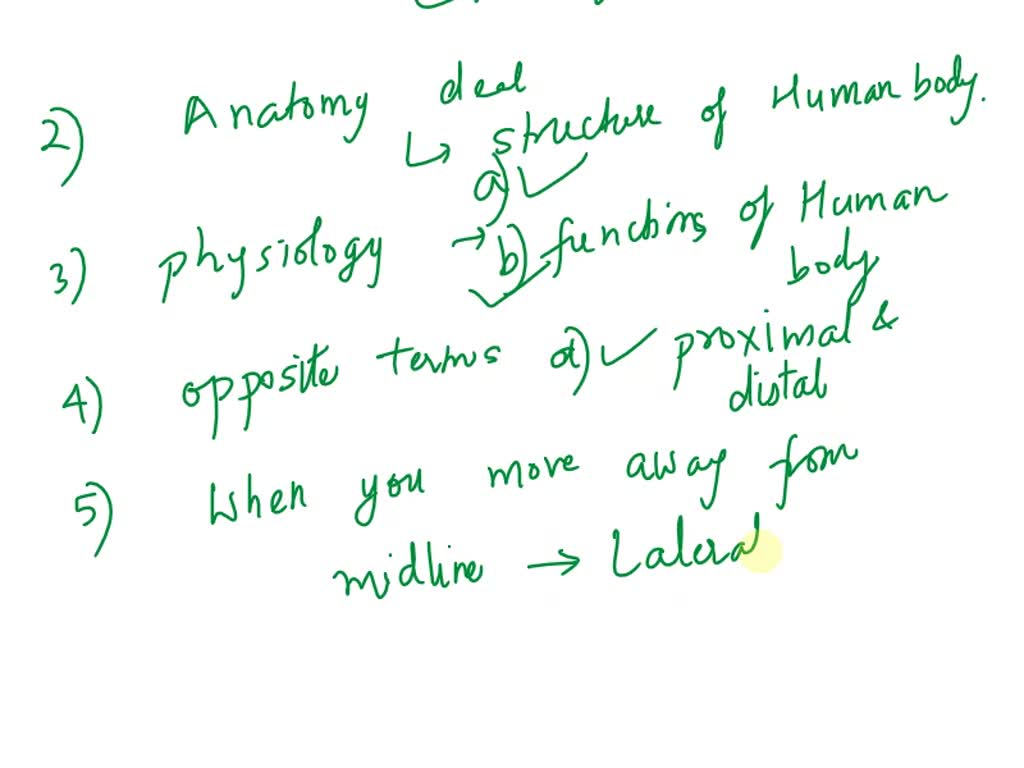 2) Anatomy deal
↳ structure of Human body.
a) ✓
3) physiology → b) functions of Human
body
✓
4) opposite terms d) ✓ proximal &
distal
5) When you move away from
midline → Lateral